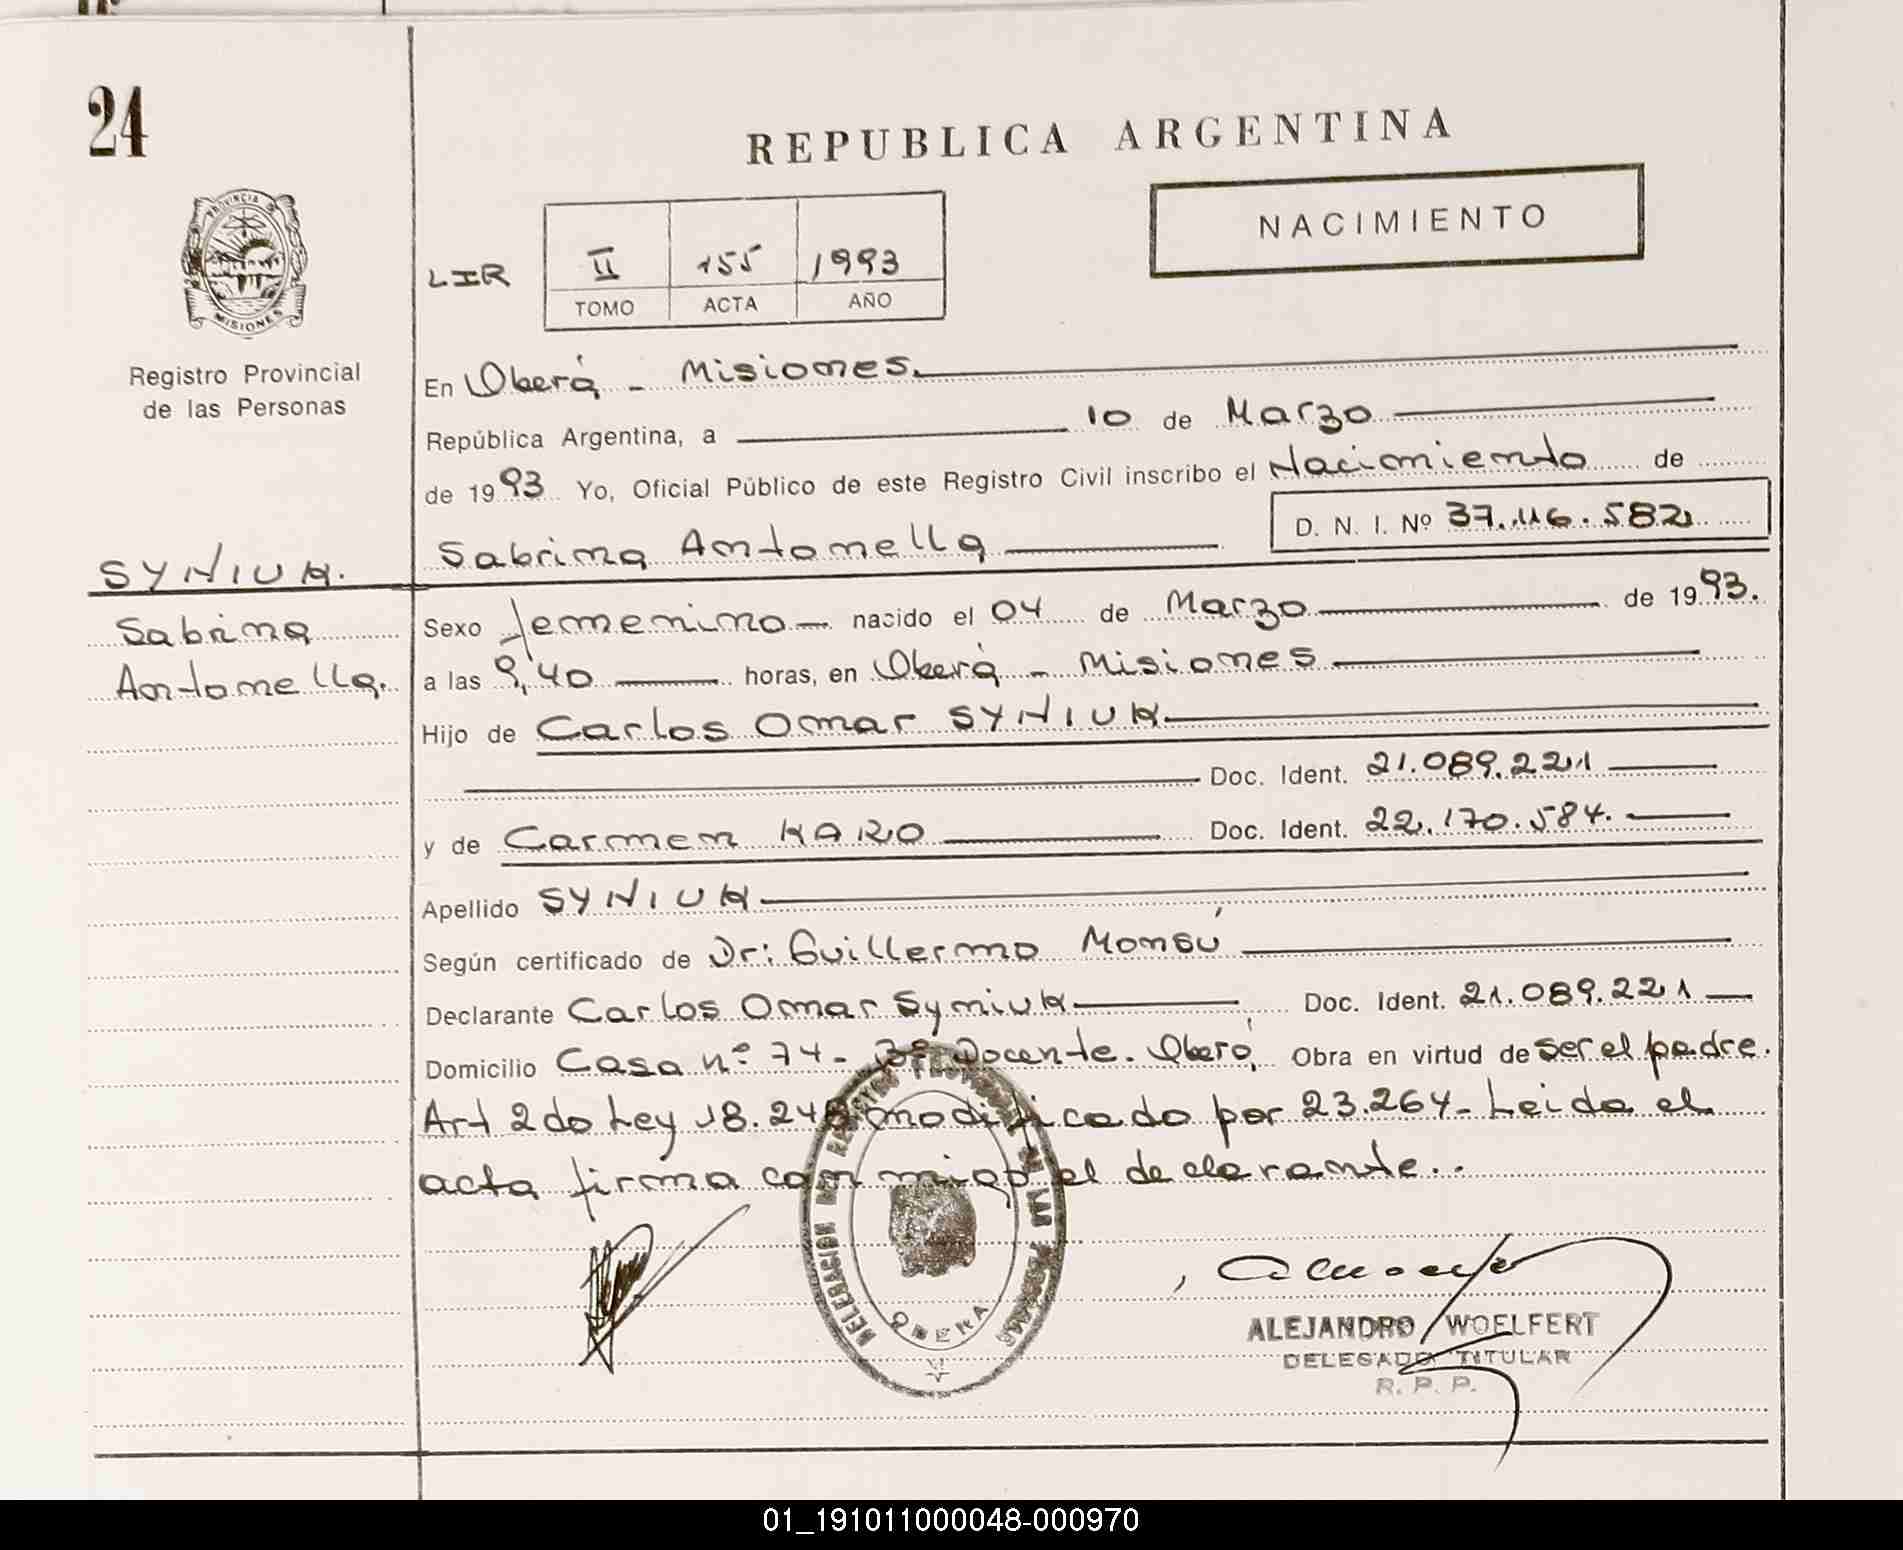 24
REPUBLICA ARGENTINA
PROVINCIA DE
MISIONES
Registro Provincial
de las Personas
NACIMIENTO
LIR II 155 1993
TOMO ACTA AÑO
En Oberá - Misiones.
República Argentina, a 10 de Marzo
de 1993 Yo, Oficial Público de este Registro Civil inscribo el Nacimiento de
Sabrina Antonella D. N. I. Nº 37.116.582
SYNIUK.
Sabrina
Antonella.
Sexo femenino nacido el 04 de Marzo de 1993.
a las 9,40 horas, en Oberá - Misiones
Hijo de Carlos Omar SYNIUK
Doc. Ident. 21.089.221
y de Carmen KARO Doc. Ident. 22.170.584.
Apellido SYNIUK
Según certificado de Dr: Guillermo
Declarante Carlos Omar Syniuk Doc. Ident. 21.089.221
Domicilio Casa nº 74 - Bº Docente. Oberá, Obra en virtud de ser el padre.
Art 2do Ley 18.248 modificado por 23.264 - Leida el
acta firma con migo el declarante..
DELEGACION DEL REGISTRO PROVINCIAL DE LAS PERSONAS
OBERA
ALEJANDRO WOELFERT
DELEGADO TITULAR
R. P. P.
01_191011000048-000970